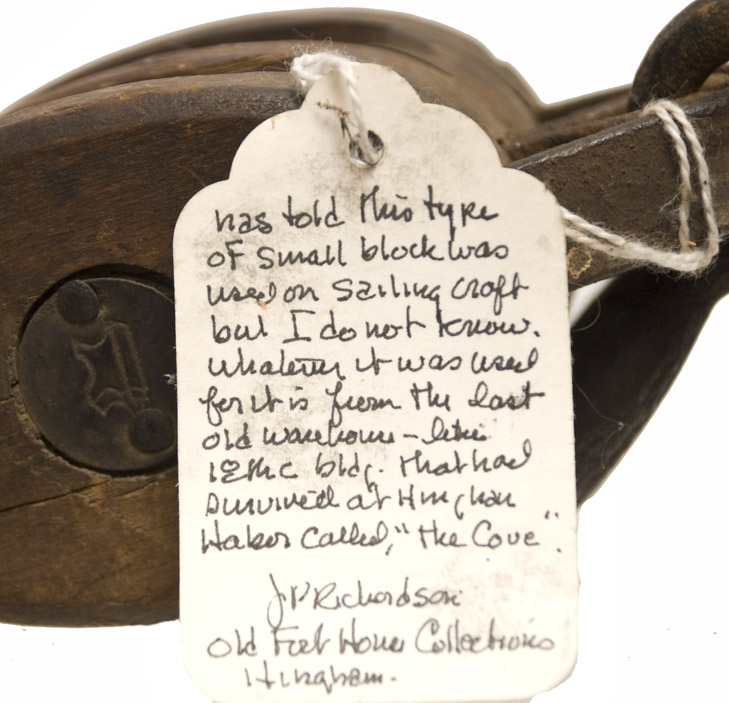 has told this type
of small block was
used on sailing craft
but I do not know.
whatever it was used
for it is from the last
old warehouse - late
18th c bldg. that had
survived at Hingham
Harbor called, "the Cove".
J P Richardson
Old Fort House Collections
Hingham.